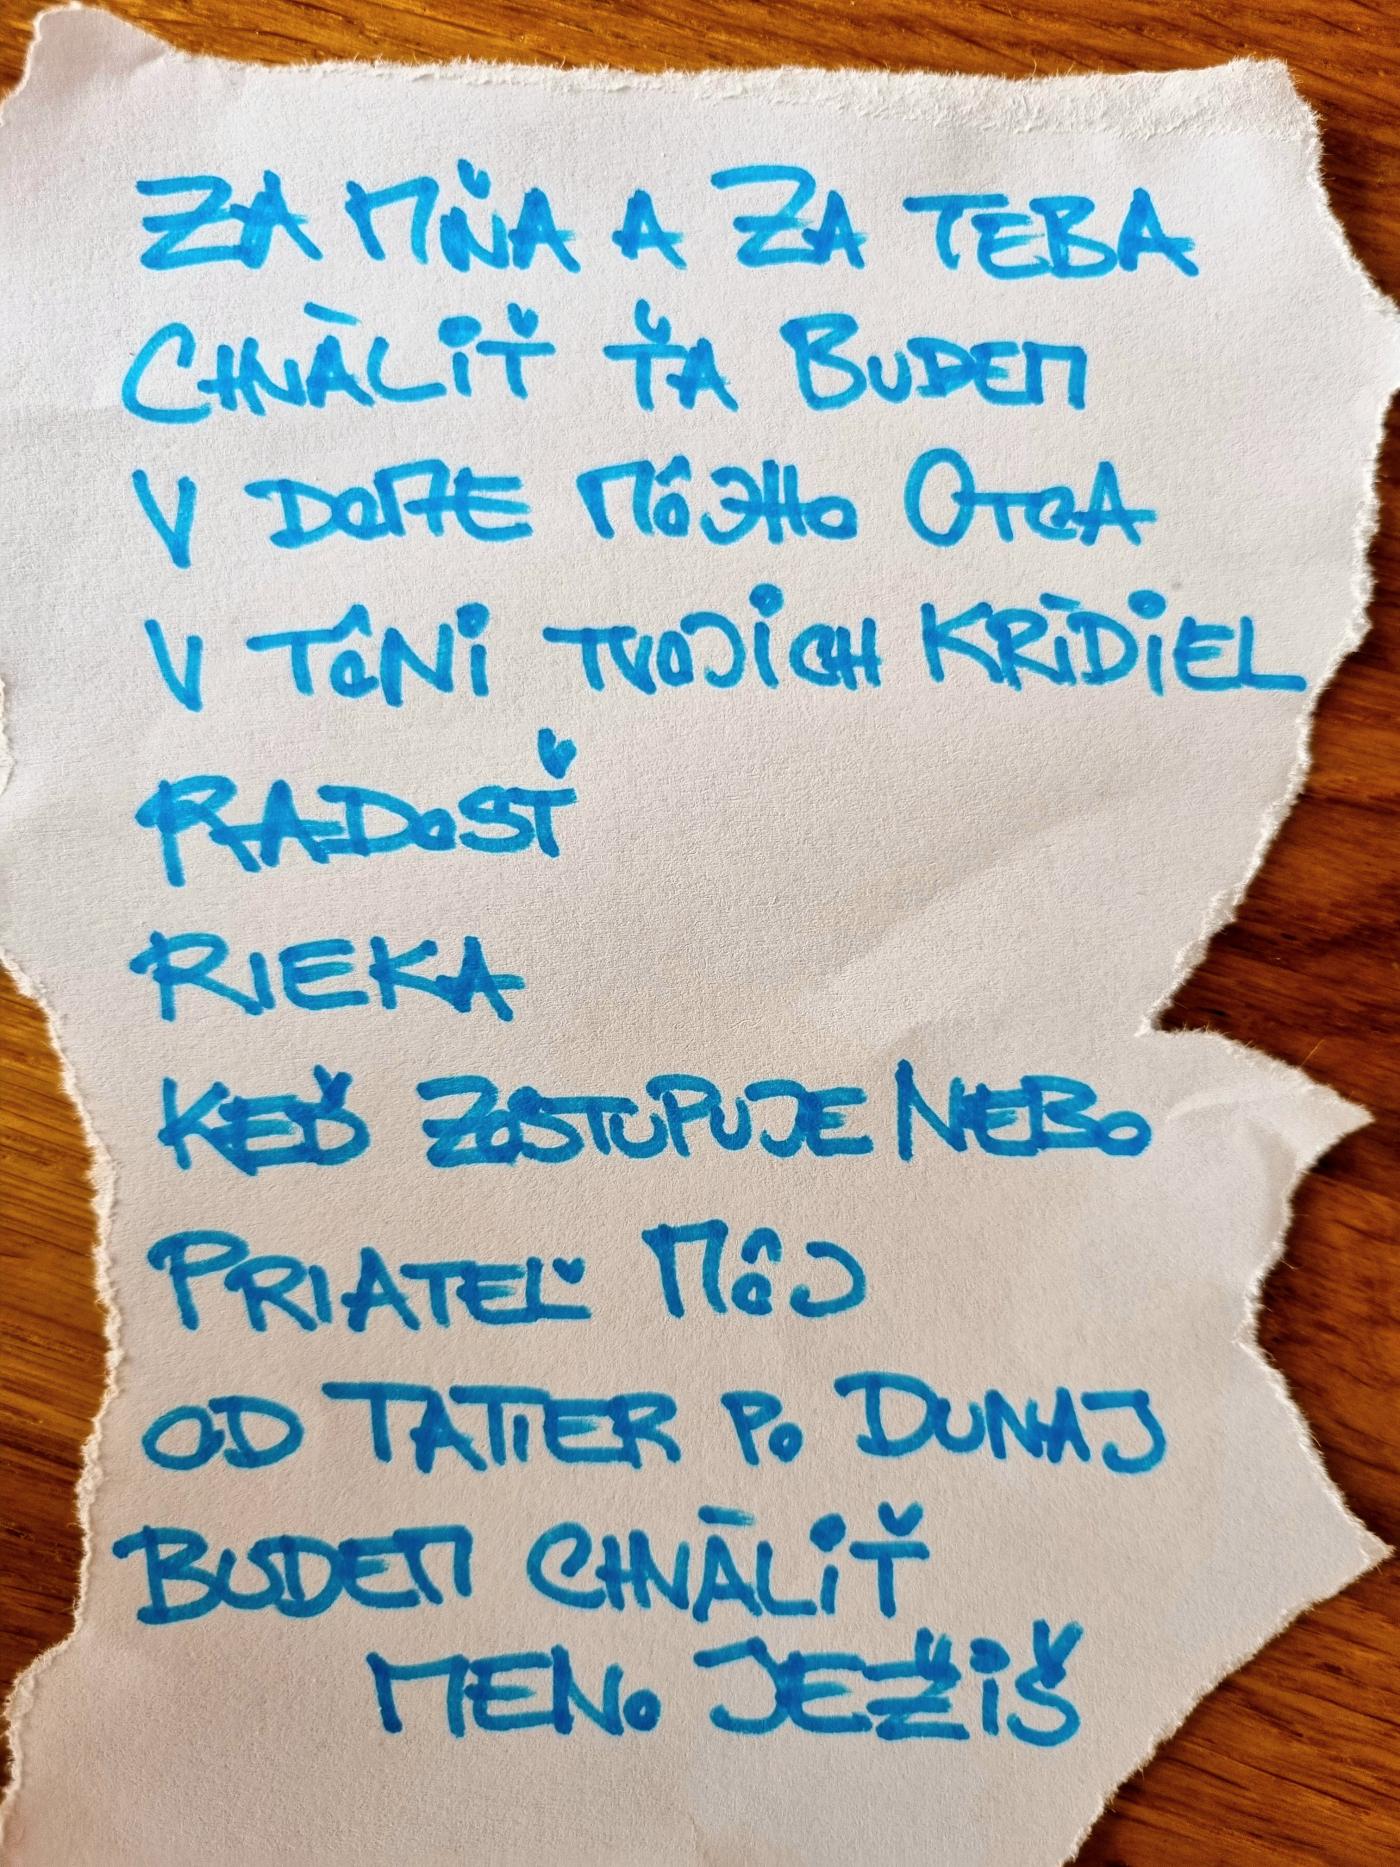 ZA MŇA A ZA TEBA
CHVÁLIŤ ŤA BUDEM
V DOME MÔJHO OTCA
V TÔNI TVOJICH KRÍDIEL
RADOSŤ
RIEKA
KEĎ ZOSTUPUJE NEBO
PRIATEĽ MÔJ
OD TATIER PO DUNAJ
BUDEM CHVÁLIŤ
MENO JEŽIŠ